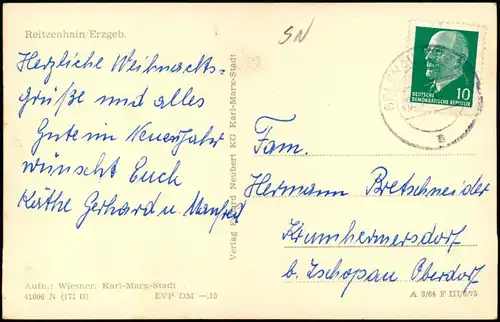 Reitzenhain/Erzgeb.
Herzliche Weihnachts-
grüße und alles
Gute im Neuen Jahr
wünscht Euch
Käthe Gerhard u. Manfred
Aufn.: Wiesner, Karl-Marx-Stadt
61006 N (171 B) EVP DM —,15
Verlag Erhard Neubert KG Karl-Marx-Stadt
SN
10
DEUTSCHE
DEMOKRATISCHE REPUBLIK
a
Fam.
Hermann Bretschneider
Krumhermersdorf
b. Zschopau Oberdorf
A 3/64 F III/6/75